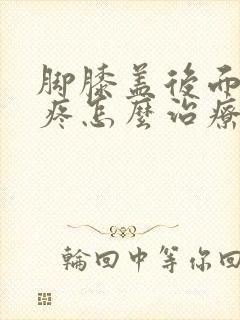 脚膝盖後面
疼怎麼治療
輪回中等你回